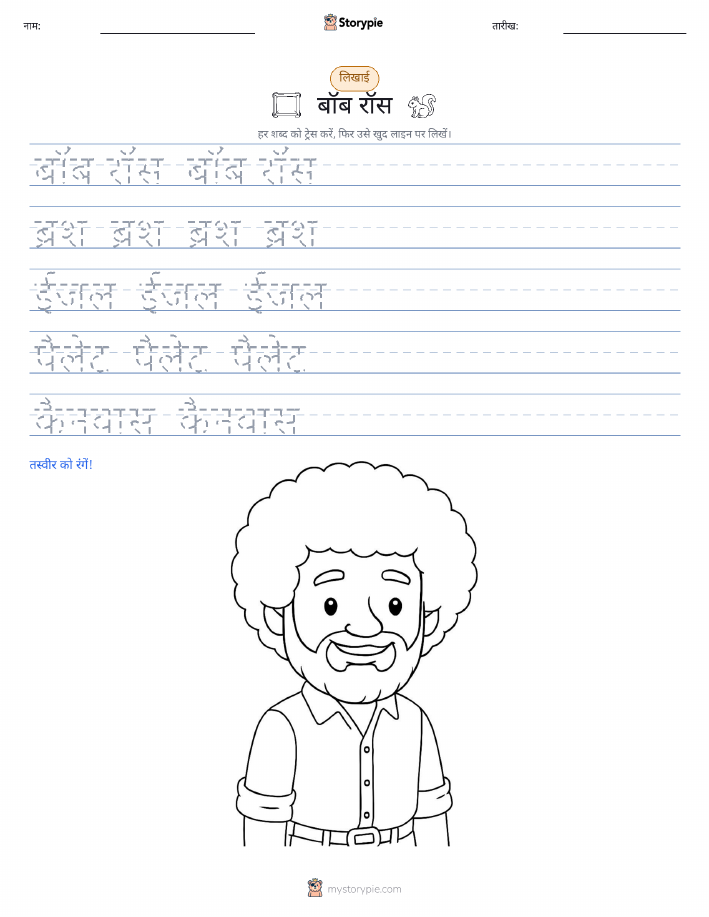 नाम: Storypie तारीख:
लिखाई
बॉब रॉस
हर शब्द को ट्रेस करें, फिर उसे खुद लाइन पर लिखें।
बॉब रॉस बॉब रॉस
ब्रश ब्रश ब्रश ब्रश
ईजल ईजल ईजल
पैलेट पैलेट पैलेट
कैनवास कैनवास
तस्वीर को रंगें!
mystorypie.com